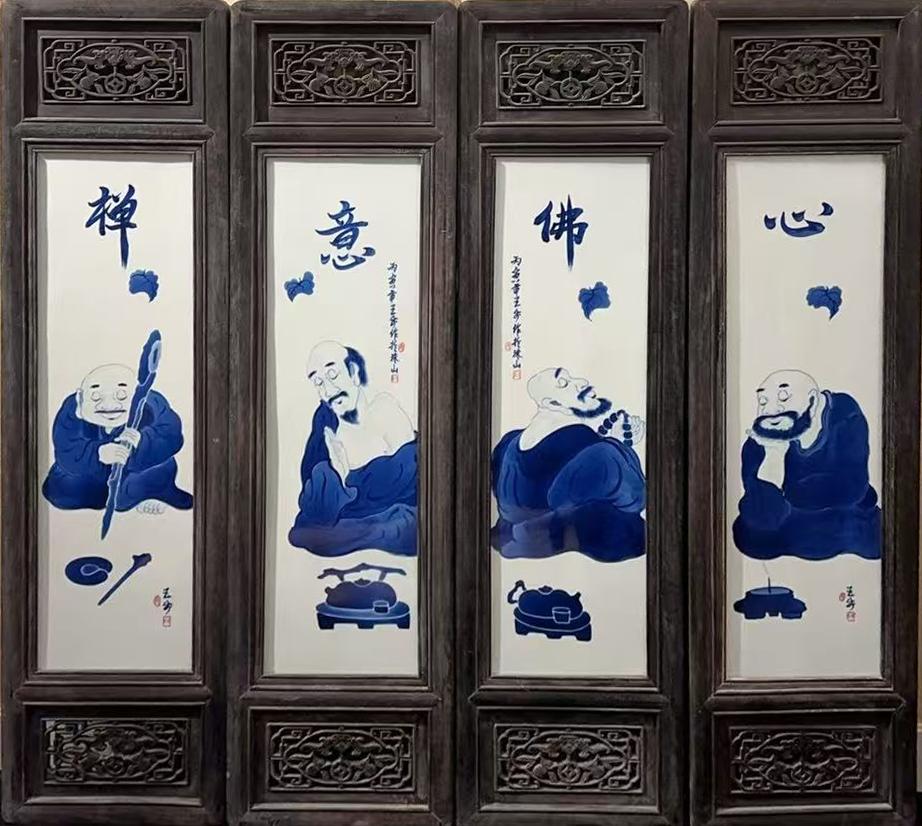 禅
王步
意
丙寅年王步作於珠山
佛
丙寅年王步作於珠山
心
王步